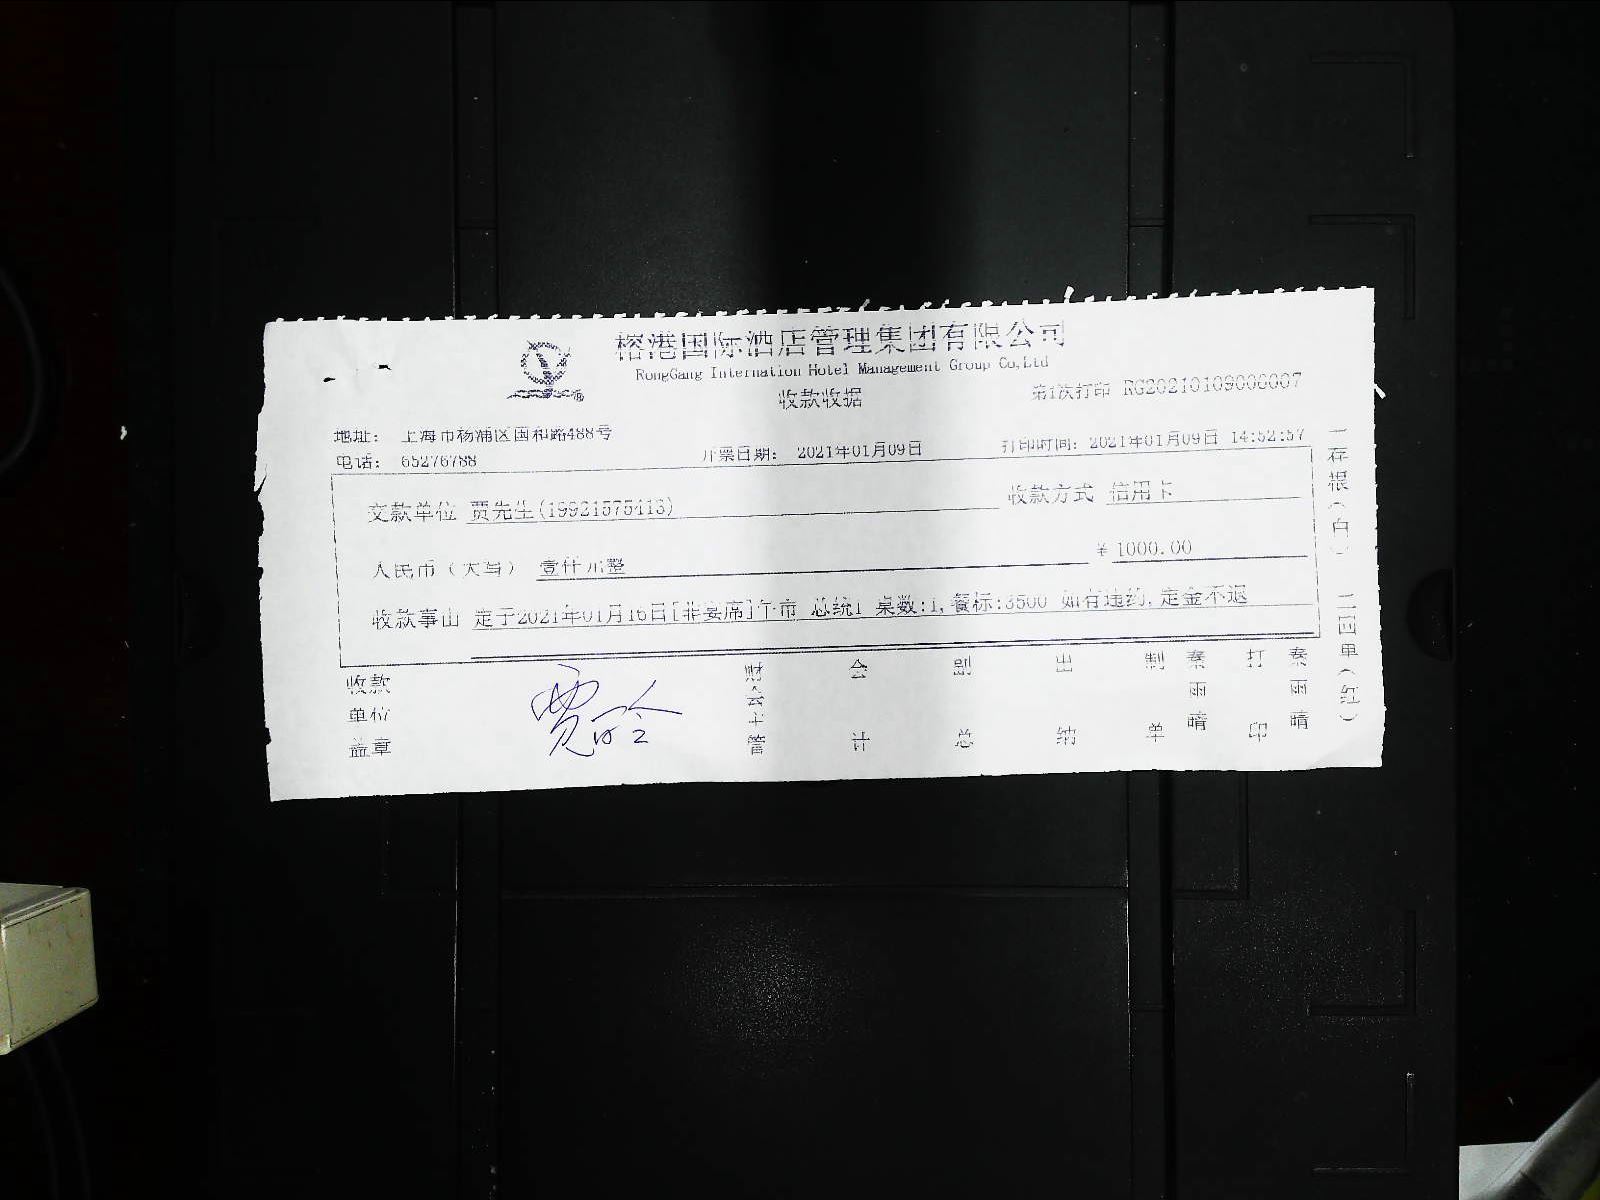 榕港国际酒店管理集团有限公司
RongGang Internation Hotel Management Group Co,Ltd
收款收据
第1次打印 RG20210109000007
地址： 上海市杨浦区国和路488号
电话： 65276788
开票日期： 2021年01月09日
打印时间：2021年01月09日 14:52:57
交款单位 贾先生(19921575413)
收款方式 信用卡
人民币（大写） 壹仟元整
¥ 1000.00
收款事由 定于2021年01月16日[非宴席]午市 总统1 桌数:1,餐标:3500 如有违约,定金不退
收款单位盖章
财会主管
会计
副总
出纳
制单 秦雨晴
打印 秦雨晴
一存根（白） 二回单（红）